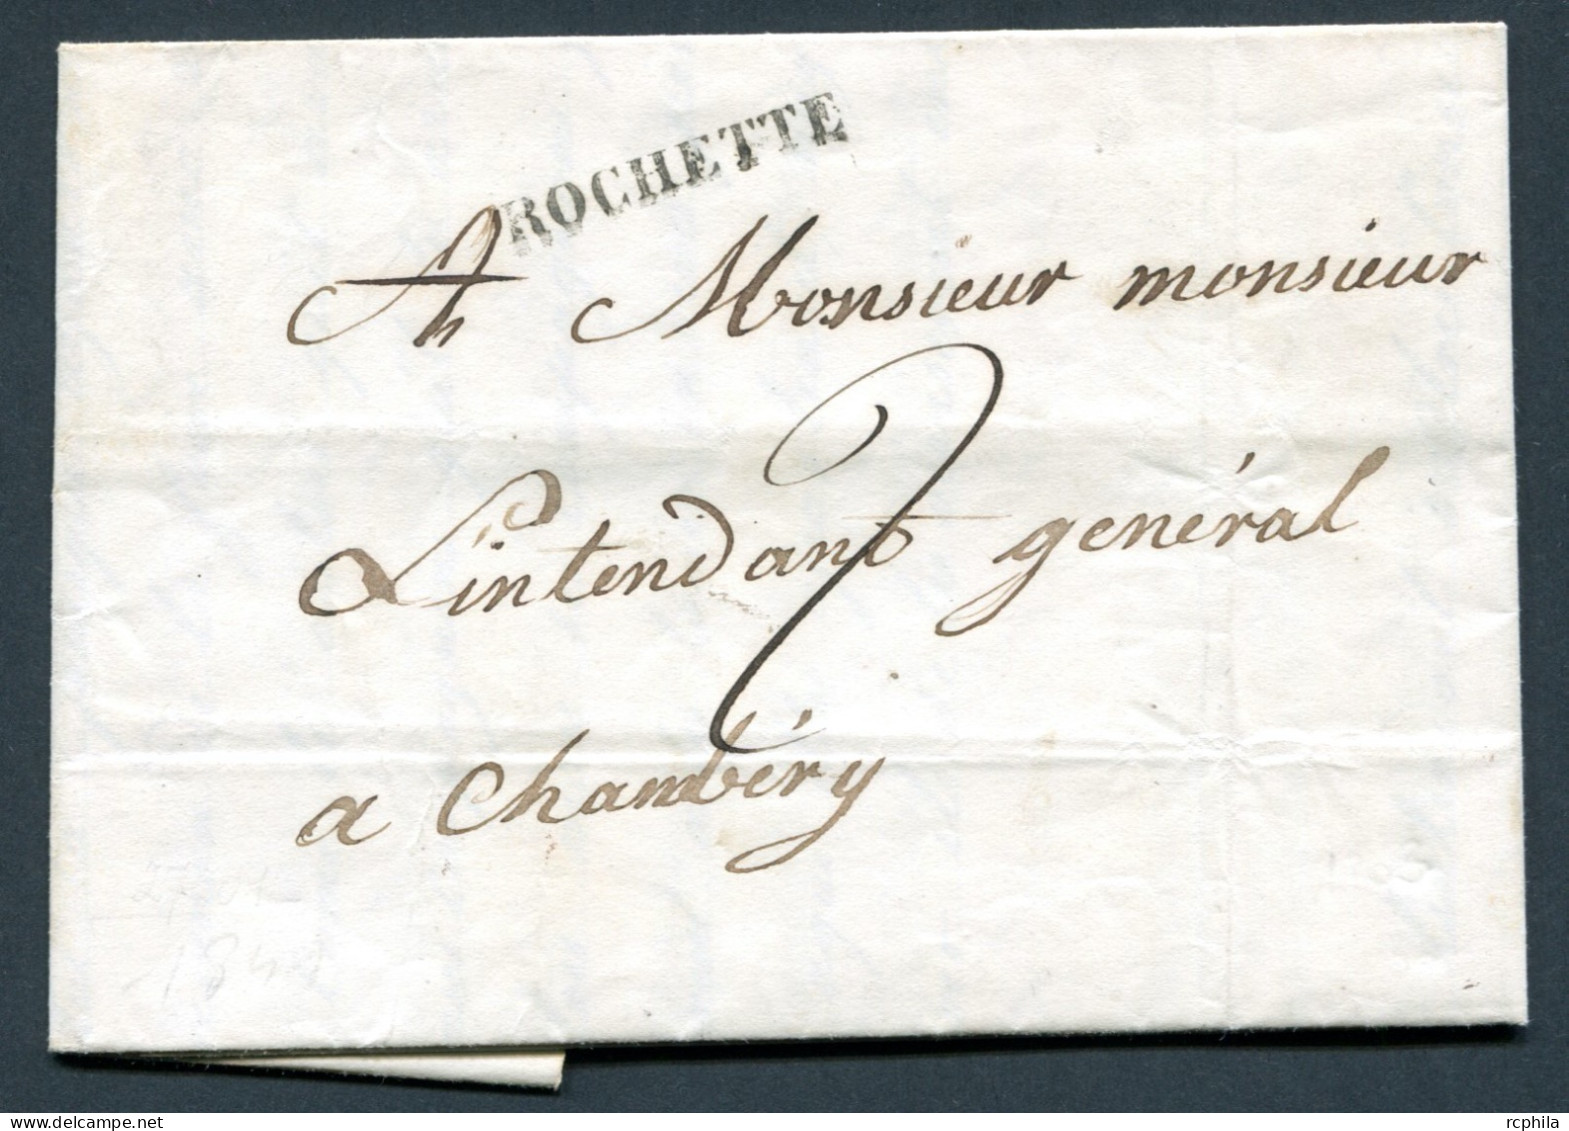 ROCHETTE
A Monsieur monsieur
L'intendant général
2
a Chambéry
rcphila